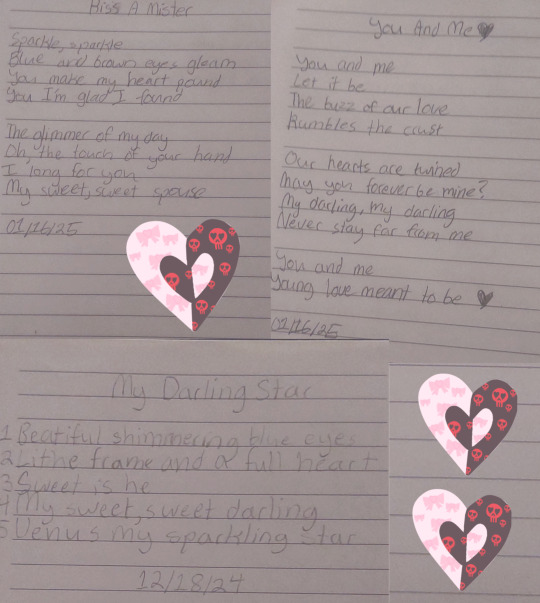 Kiss A Mister
Sparkle, sparkle
Blue and brown eyes gleam
You make my heart pound
You I'm glad I found
The glimmer of my day
Oh, the touch of your hand
I long for you
My sweet, sweet spouse
01/16/25
You And Me
You and me
Let it be
The buzz of our love
Rumbles the crust
Our hearts are twined
May you forever be mine?
My darling, my darling
Never stay far from me
You and me
Young love meant to be
01/16/25
My Darling Star
1 Beatiful shimmering blue eyes
2 Lithe frame and a full heart
3 Sweet is he
4 My sweet, sweet darling
5 Venus my sparkling star
12/18/24